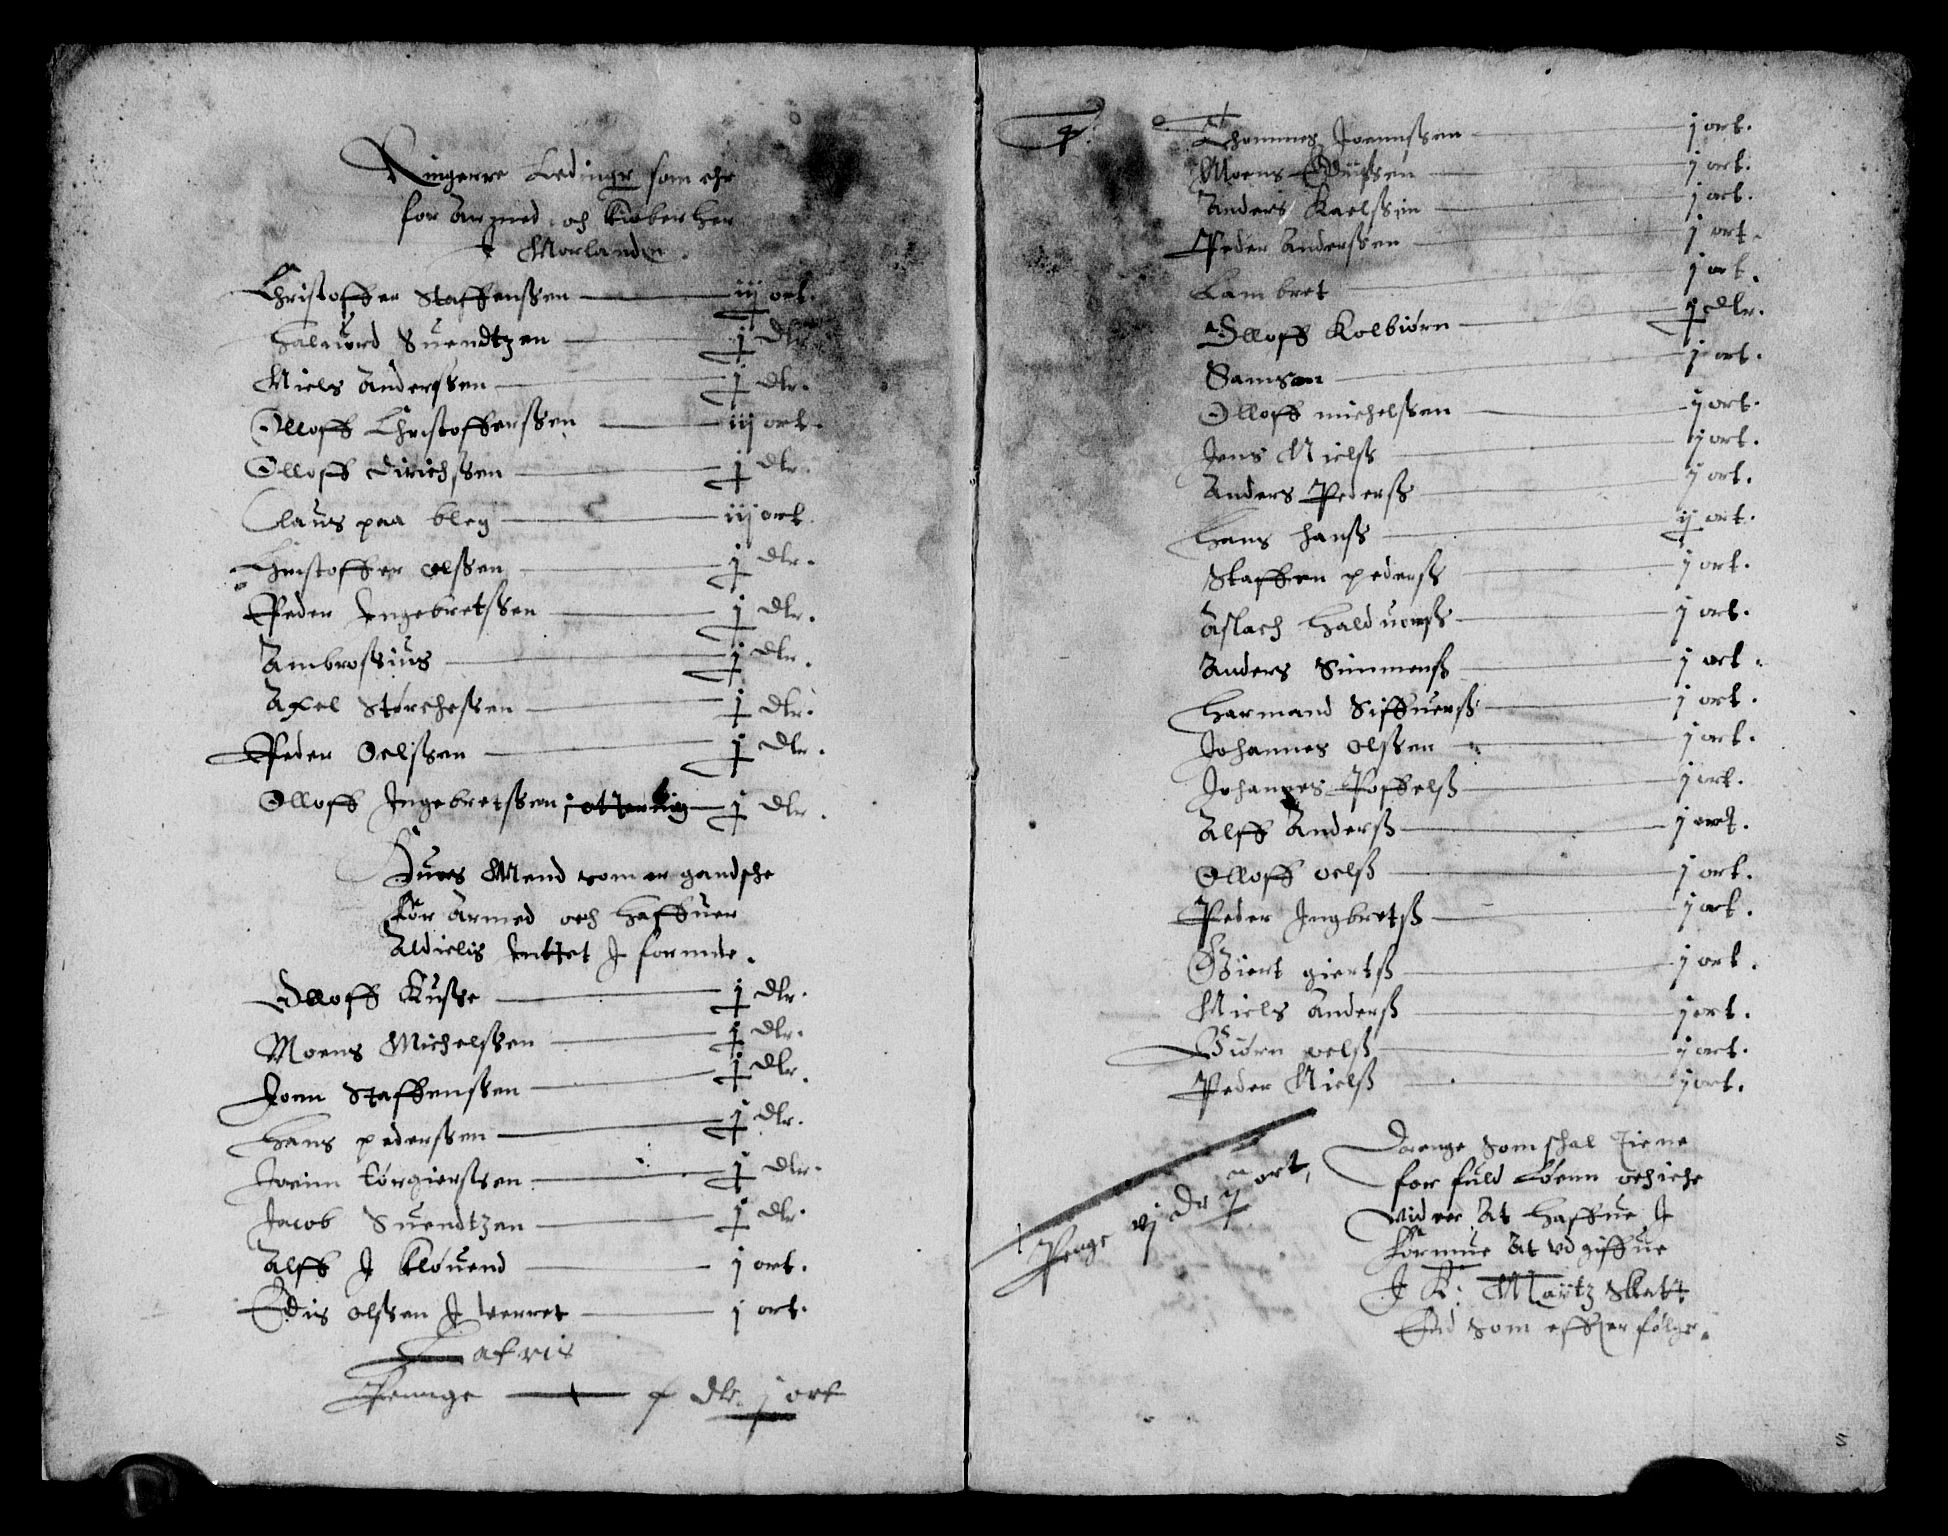 Ringerre Ledingr som ehr
for Armed och kiøber her
J Morlandn.
Christoffer Staffenssen iij ort.
Haluord Suendtzen j dlr
Niels Anderssen j dlr.
Olloff Christofferssen iij ort.
Olloff Dirichssen j dlr.
Claus paa bleg iij ort.
Christoffer oelssen j dlr.
Peder Jngebretssen j dlr.
Ambrossius j dlr.
Axel Størchessen j dlr.
Peder Oelssen j dlr.
Olloff Jngebretssen j dlr.
Huus Mend som er gandsche
for Armed och haffuer
Aldielis Inttet J formue.
Olloff Kusse j dlr.
Moens Michelssen j dlr.
Joen Staffenssen j dlr.
Hans pederssen j dlr.
Joein Torgierssen j dlr.
Jacob Suendtzen j dlr.
Alff J Kløuend j ort.
Edis olssen J verret j ort.
Latris
Pennge dlr. j ort
4.
Thommes Joennssen j ort.
Moens j ort.
Anders Kaelssen j ort.
Peder Anderssen j ort.
Lambret j ort.
Olloff Kolbiørn j dlr.
Samson j ort.
Olloff michelssen j ort.
Jens Nielss j ort.
Anders Pederss j ort.
Hans hanss ij ort.
Staffen pederss j ort.
Aslach Halduorss j ort.
Anders Simmenss j ort.
Harmand Siffuerss j ort.
Johannes olssen j ort.
Johannes Poffelss j ort.
Alff Anderss j ort.
Olloff oelss j ort.
Peder Jngbretss j ort.
Giert giertss j ort.
Niels Anderss j ort.
Biørn oelss j ort.
Peder Nielss j ort.
Penge vj dr ort,
Drenge som schal tiene
for fuld Løenn och iche
vid er At haffue J
formue At vd giffue
J K: Maÿtz Skatt
End som effter følgr.
5